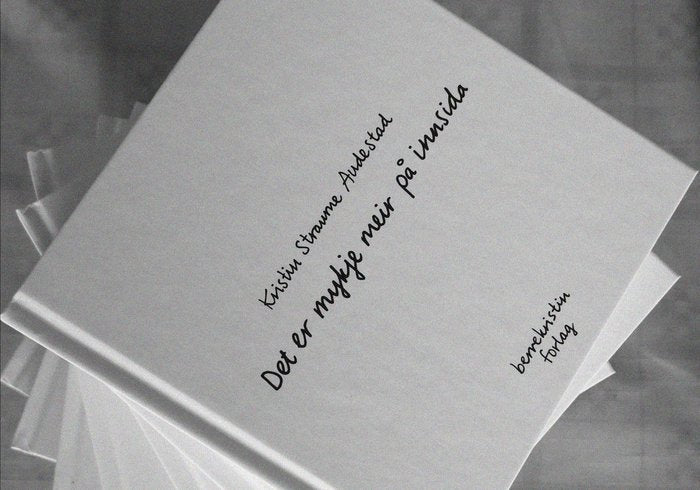 Kristin Straume Audestad
Det er mykje meir på innsida
berrekristin
forlag